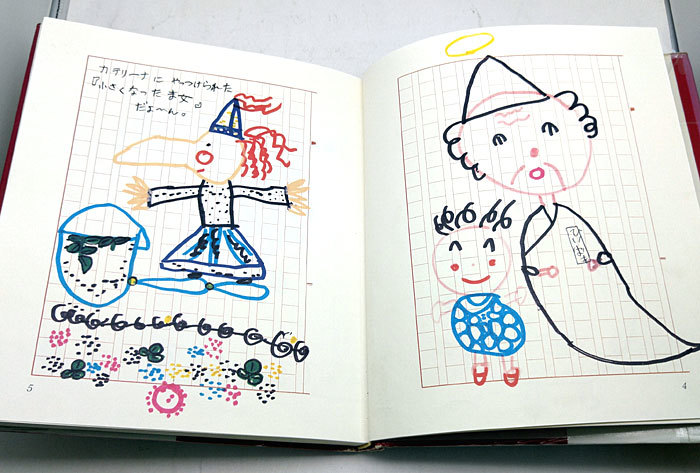 カテリーナに やっつけられた
『小さくなった ま女』
だよ〜ん。
ひいばぁ
5
4